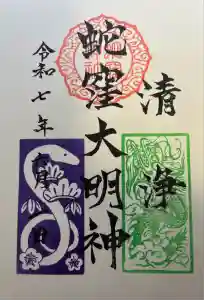 清浄
蛇窪大明神
令和七年